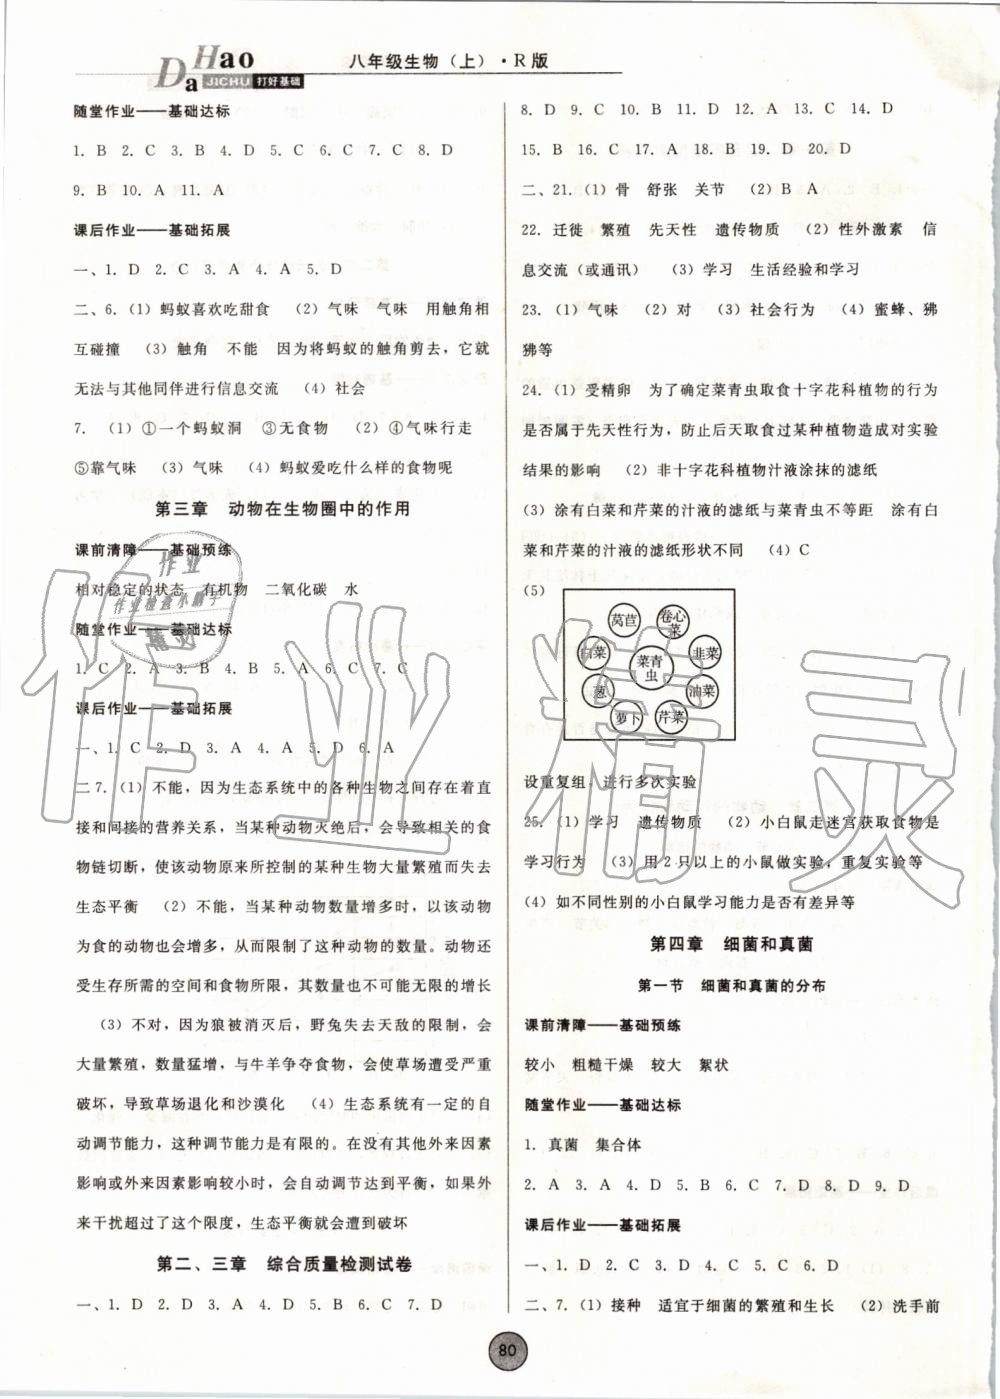 DaHao
JICHU 打好基础
八年级生物（上）·R版
随堂作业——基础达标
1. B 2. C 3. B 4. D 5. C 6. C 7. C 8. D
9. B 10. A 11. A
课后作业——基础拓展
一、1. D 2. C 3. A 4. A 5. D
二、6.（1）蚂蚁喜欢吃甜食 （2）气味 气味 用触角相
互碰撞 （3）触角 不能 因为将蚂蚁的触角剪去，它就
无法与其他同伴进行信息交流 （4）社会
7. （1）①一个蚂蚁洞 ③无食物 （2）④气味行走
⑤靠气味 （3）气味 （4）蚂蚁爱吃什么样的食物呢
第三章 动物在生物圈中的作用
课前清障——基础预练
相对稳定的状态 有机物 二氧化碳 水
随堂作业——基础达标
1. C 2. A 3. B 4. B 5. A 6. C 7. C
课后作业——基础拓展
一、1. C 2. D 3. D 4. A 5. D 6. A
二 7.（1）不能，因为生态系统中的各种生物之间存在着直
接和间接的营养关系，当某种动物灭绝后，会导致相关的食
物链切断，使该动物原来所控制的某种生物大量繁殖而失去
生态平衡 （2）不能，当某种动物数量增多时，以该动物
为食的动物也会增多，从而限制了这种动物的数量。动物还
受生存所需的空间和食物所限，其数量也不可能无限的增长
（3）不对，因为狼被消灭后，野兔失去天敌的限制，会
大量繁殖，数量猛增，与牛羊争夺食物，会使草场遭到严重
破坏，导致草场退化和沙漠化 （4）生态系统有一定的自
动调节能力，这种调节能力是有限的。在没有其他外来因素
影响或外来因素影响较小时，会自动调节达到平衡，如果外
来干扰超过了这个限度，生态平衡就会遭到破坏
第二、三章 综合质量检测试卷
一、1. D 2. D 3. A 4. D 5. B 6. C 7. D
8. D 9. C 10. B 11. D 12. A 13. C 14. D
15. B 16. C 17. A 18. B 19. D 20. D
二、21.（1）骨 舒张 关节 （2）B A
22. 迁徙 繁殖 先天性 遗传物质 （2）性外激素 信
息交流（或通讯） （3）学习 生活经验和学习
23.（1）气味 （2）对 （3）社会行为 （4）蜜蜂、狒
狒等
24.（1）受精卵 为了确定菜青虫取食十字花科植物的行为
是否属于先天性行为，防止后天取食过某种植物造成对实验
结果的影响 （2）非十字花科植物汁液涂抹的滤纸
（3）涂有白菜和芹菜的汁液的滤纸与菜青虫不等距 涂有白
菜和芹菜的汁液的滤纸形状不同 （4）C
（5）
莴苣
卷心菜
白菜
菜青虫
韭菜
葱
油菜
萝卜
芹菜
设重复组，进行多次实验
25.（1）学习 遗传物质 （2）小白鼠走迷宫获取食物是
学习行为 （3）用 2 只以上的小鼠做实验，重复实验等
（4）如不同性别的小白鼠学习能力是否有差异等
第四章 细菌和真菌
第一节 细菌和真菌的分布
课前清障——基础预练
较小 粗糙干燥 较大 絮状
随堂作业——基础达标
1. 真菌 集合体
2. A 3. A 4. D 5. B 6. C 7. D 8. D 9. D
课后作业——基础拓展
一、1. D 2. C 3. D 4. C 5. C 6. D
二、7.（1）接种 适宜于细菌的繁殖和生长 （2）洗手前
80
作业
作业检查小助手
精灵
作业精灵